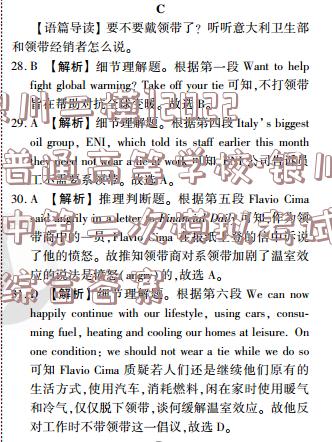 C
【语篇导读】要不要戴领带了？听听意大利卫生部
和领带经销者怎么说。
28. B 【解析】细节理解题。根据第一段 Want to help
fight global warming? Take off your tie 可知,不打领带
旨在帮助对抗全球变暖。故选 B。
29. A 【解析】细节理解题。根据第四段 Italy's biggest
oil group, ENI, which told its staff earlier this month
they need not wear a tie at work 可知,
工不需要系领带。故选 A。
30. A 【解析】推理判断题。根据第五段 Flavio Cima
said angrily in a letter to Financial Daily 可知,作为领
带商中的一员, Flavio Cima 在报纸上登的信中诉说
了他的愤怒。故推知领带商对系领带加剧了温室效
应的说法是愤怒(angry)的,故选 A。
31. D 【解析】细节理解题。根据第六段 We can now
happily continue with our lifestyle, using cars, consu-
ming fuel, heating and cooling our homes at leisure. On
one condition; we should not wear a tie while we do so
可知 Flavio Cima 质疑若人们还是继续他们原有的
生活方式,使用汽车,消耗燃料,闲在家时使用暖气
和冷气,仅仅脱下领带,谈何缓解温室效应。故他反
对工作时不带领带这一倡议,故选 D。
银川二模12022
普通高等学校 银川
中第二次模拟考试
综合答案